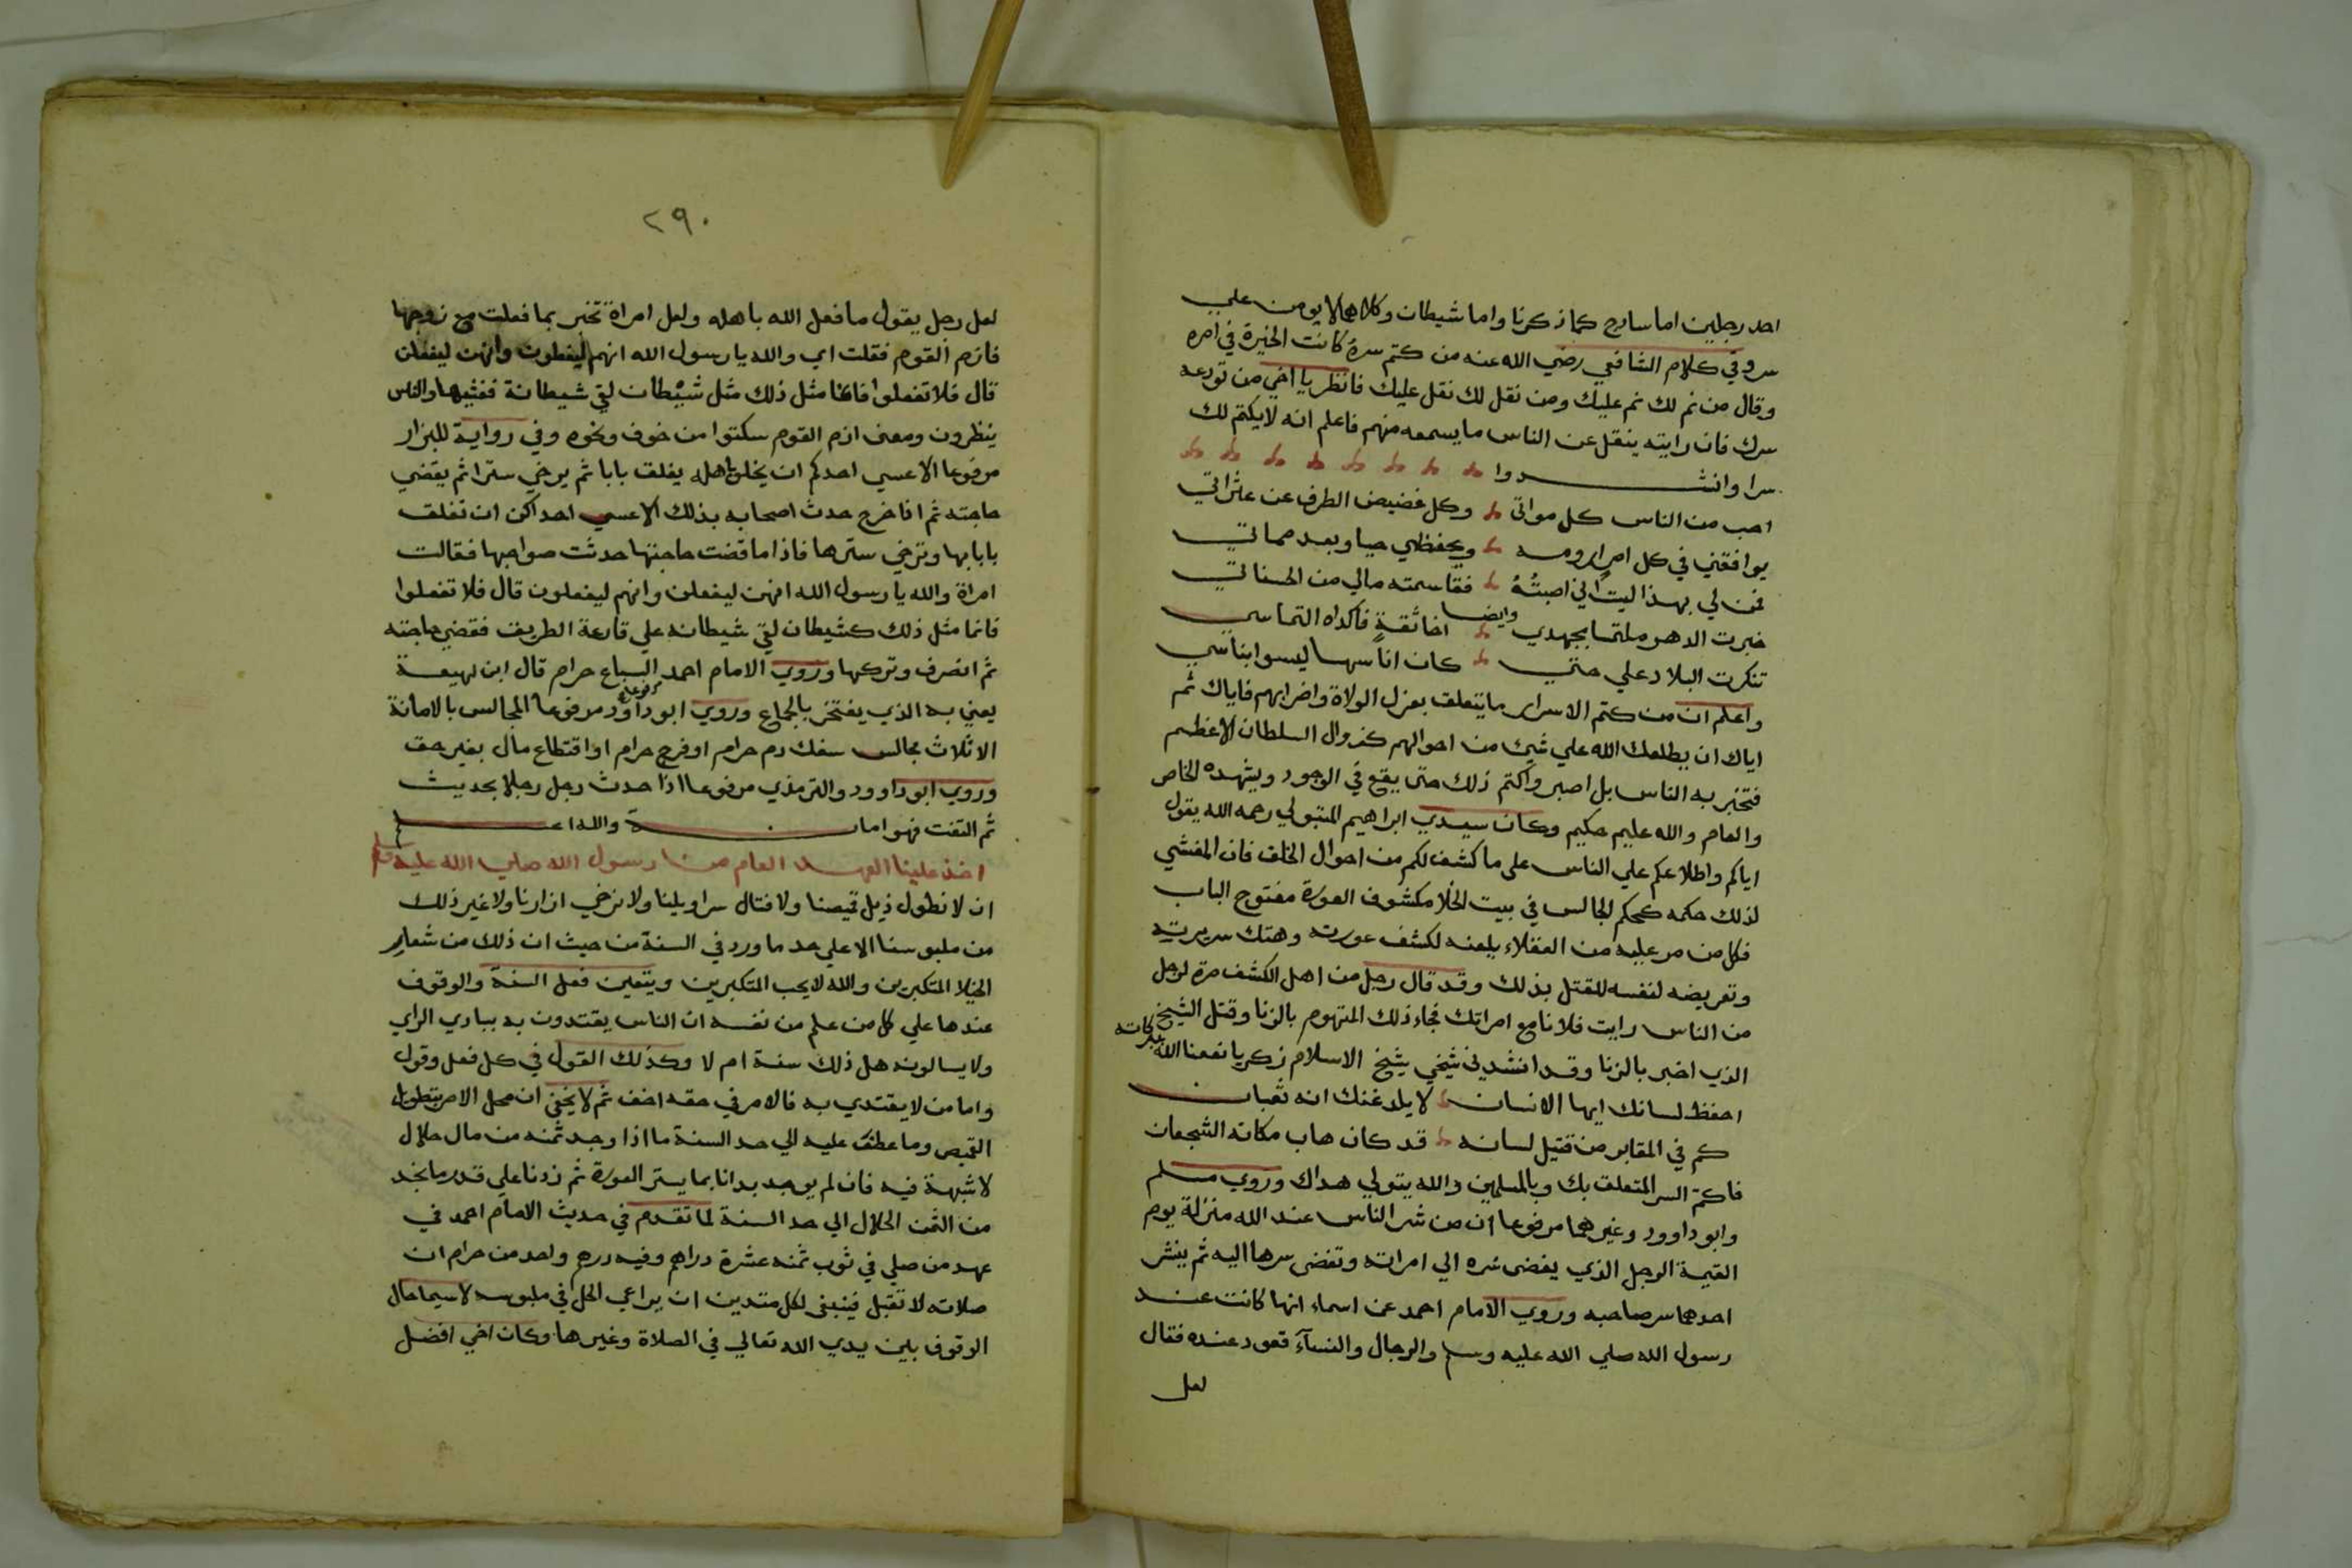 احد رجلين اما سارح كما ذكرنا واما شيطان وكلاهما لا يومن علي
سر وفي كلام الشافعي رضي الله عنه من كتم سره كانت الخيرة في امره
وقال من نم لك نم عليك ومن نقل لك نقل عليك فانظر يا اخي من تودعه
سرك فان رايته ينقل عن الناس ما يسمعه منهم فاعلم انه لا يكتم لك
سرا وانشدوا
احب من الناس كل مواتى وكل غضيض الطرف عن عثراتي
يوافقني في كل امر ارومه ويحفظني حيا وبعد مماتي
فمن لي بهذا ليت اني اصبته فقاسمته مالي من الحسناتي
وايضا
خبرت الدهر ملتمسا بجهدي اخا ثقة فاكداه التماسي
تنكرت البلاد علي حتي كان اناسها ليسوا بناسي
واعلم ان من كتم الاسرار ما يتعلق بعزل الولاة واضرابهم فاياك ثم
اياك ان يطلعك الله علي شيئ من احوالهم كزوال السلطان الاعظم
فتخبر به الناس بل اصبر واكتم ذلك حتى يقع في الوجود ويشهده الخاص
والعام والله عليم حكيم وكان سيدي ابراهيم المتبولي رحمه الله يقول
اياكم واطلاعكم علي الناس على ما كشف لكم من احوال الخلق فان المفشي
لذلك حكمه كحكم الجالس في بيت الخلا مكشوف العورة مفتوح الباب
فكل من مر عليه من العقلاء يلعنه لكشف عورته وهتك سريرته
وتعريضه لنفسه للقتل بذلك وقد قال رجل من اهل الكشف مرة لرجل
من الناس رايت فلانا مع امراتك فجاء ذلك المتهوم بالزنا وقتل الشيخ
الذي اخبر بالزنا وقد انشدني شيخي شيخ الاسلام زكريا نفعنا الله ببركاته
احفظ لسانك ايها الانسان لا يلدغنك انه ثعبان
كم في المقابر من قتيل لسانه قد كان هاب مكانه الشجعان
فاكتم السر المتعلق بك وبالمسلمين والله يتولي هداك وروي مسلم
وابو داوود وغيرهما مرفوعا ان من شر الناس عند الله منزلة يوم
القيمة الرجل الذي يفضى سره الي امراته وتفضى سرها اليه ثم ينشر
احدهما سر صاحبه وروي الامام احمد عن اسماء انها كانت عند
رسول الله صلي الله عليه وسلم والرجال والنسآء قعود عنده فقال
لعل
٢٩٠
لعل رجل يقول ما فعل الله باهله ولعل امراة تخبر بما فعلت مع زوجها
فازم القوم فقلت اي والله يا رسول الله انهم ليفعلون وانهن ليفعلن
قال فلا تفعلوا فانما مثل ذلك مثل شيطان لقي شيطانة فغشيها والناس
ينظرون ومعنى ازم القوم سكتوا من خوف ونحوه وفي رواية للبزار
مرفوعا الا عسي احدكم ان يخلو باهله يغلق بابا ثم يرخي سترا ثم يقضي
حاجته ثم اذا خرج حدث اصحابه بذلك الا عسي احداكن ان تغلق
بابا بها وترخي سترها فاذا ما قضت حاجتها حدثت صواحبها فقالت
امراة والله يا رسول الله انهن ليفعلن وانهم ليفعلون قال فلا تفعلوا
فانما مثل ذلك كشيطان لقي شيطانه علي قارعة الطريق فقضي حاجته
ثم انصرف وتركها وروي الامام احمد السباع حرام قال ابن لهيعة
يعني به الذي يفتخر بالجماع وروي ابو داود مرفوعا المجالس بالامانة
الا ثلاث مجالس سفك دم حرام او فرج حرام او اقتطاع مال بغير حق
وروي ابو داوود والترمذي مرفوعا اذا حدث رجل رجلا بحديث
ثم التفت فهو امانة والله اعلم
اخذ علينا العهد العام من رسول الله صلي الله عليه وسلم
ان لا نطول ذيل قميصنا ولا فتال سراويلنا ولا نرخي ازارنا ولا غير ذلك
من ملبوسنا الا علي حد ما ورد في السنة من حيث ان ذلك من شعاير
الخيلا المتكبرين والله لا يحب المتكبرين ويتعين فعل السنة والوقوف
عندها علي كل من علم من نفسه ان الناس يقتدون به ببادي الراي
ولا يسالونه هل ذلك سنة ام لا وكذلك القول في كل فعل وقول
واما من لا يقتدي به فالامر في حقه اخف ثم لا يخفي ان محل الامر بتطويل
القميص وما عطف عليه الي حد السنة ما اذا وجد ثمنه من مال حلال
لا شبهة فيه فان لم يوجد بدانا بما يستر العورة ثم زدنا علي قدر ما نجد
من الثمن الحلال الي حد السنة لما تقدم في حديث الامام احمد في
عهد من صلي في ثوب ثمنه عشرة دراهم وفيه درهم واحد من حرام ان
صلاته لا تقبل فينبغى لكل متدين ان يراعي الحل في ملبوسه لا سيما حال
الوقوف بين يدي الله تعالي في الصلاة وغيرها وكان اخي افضل